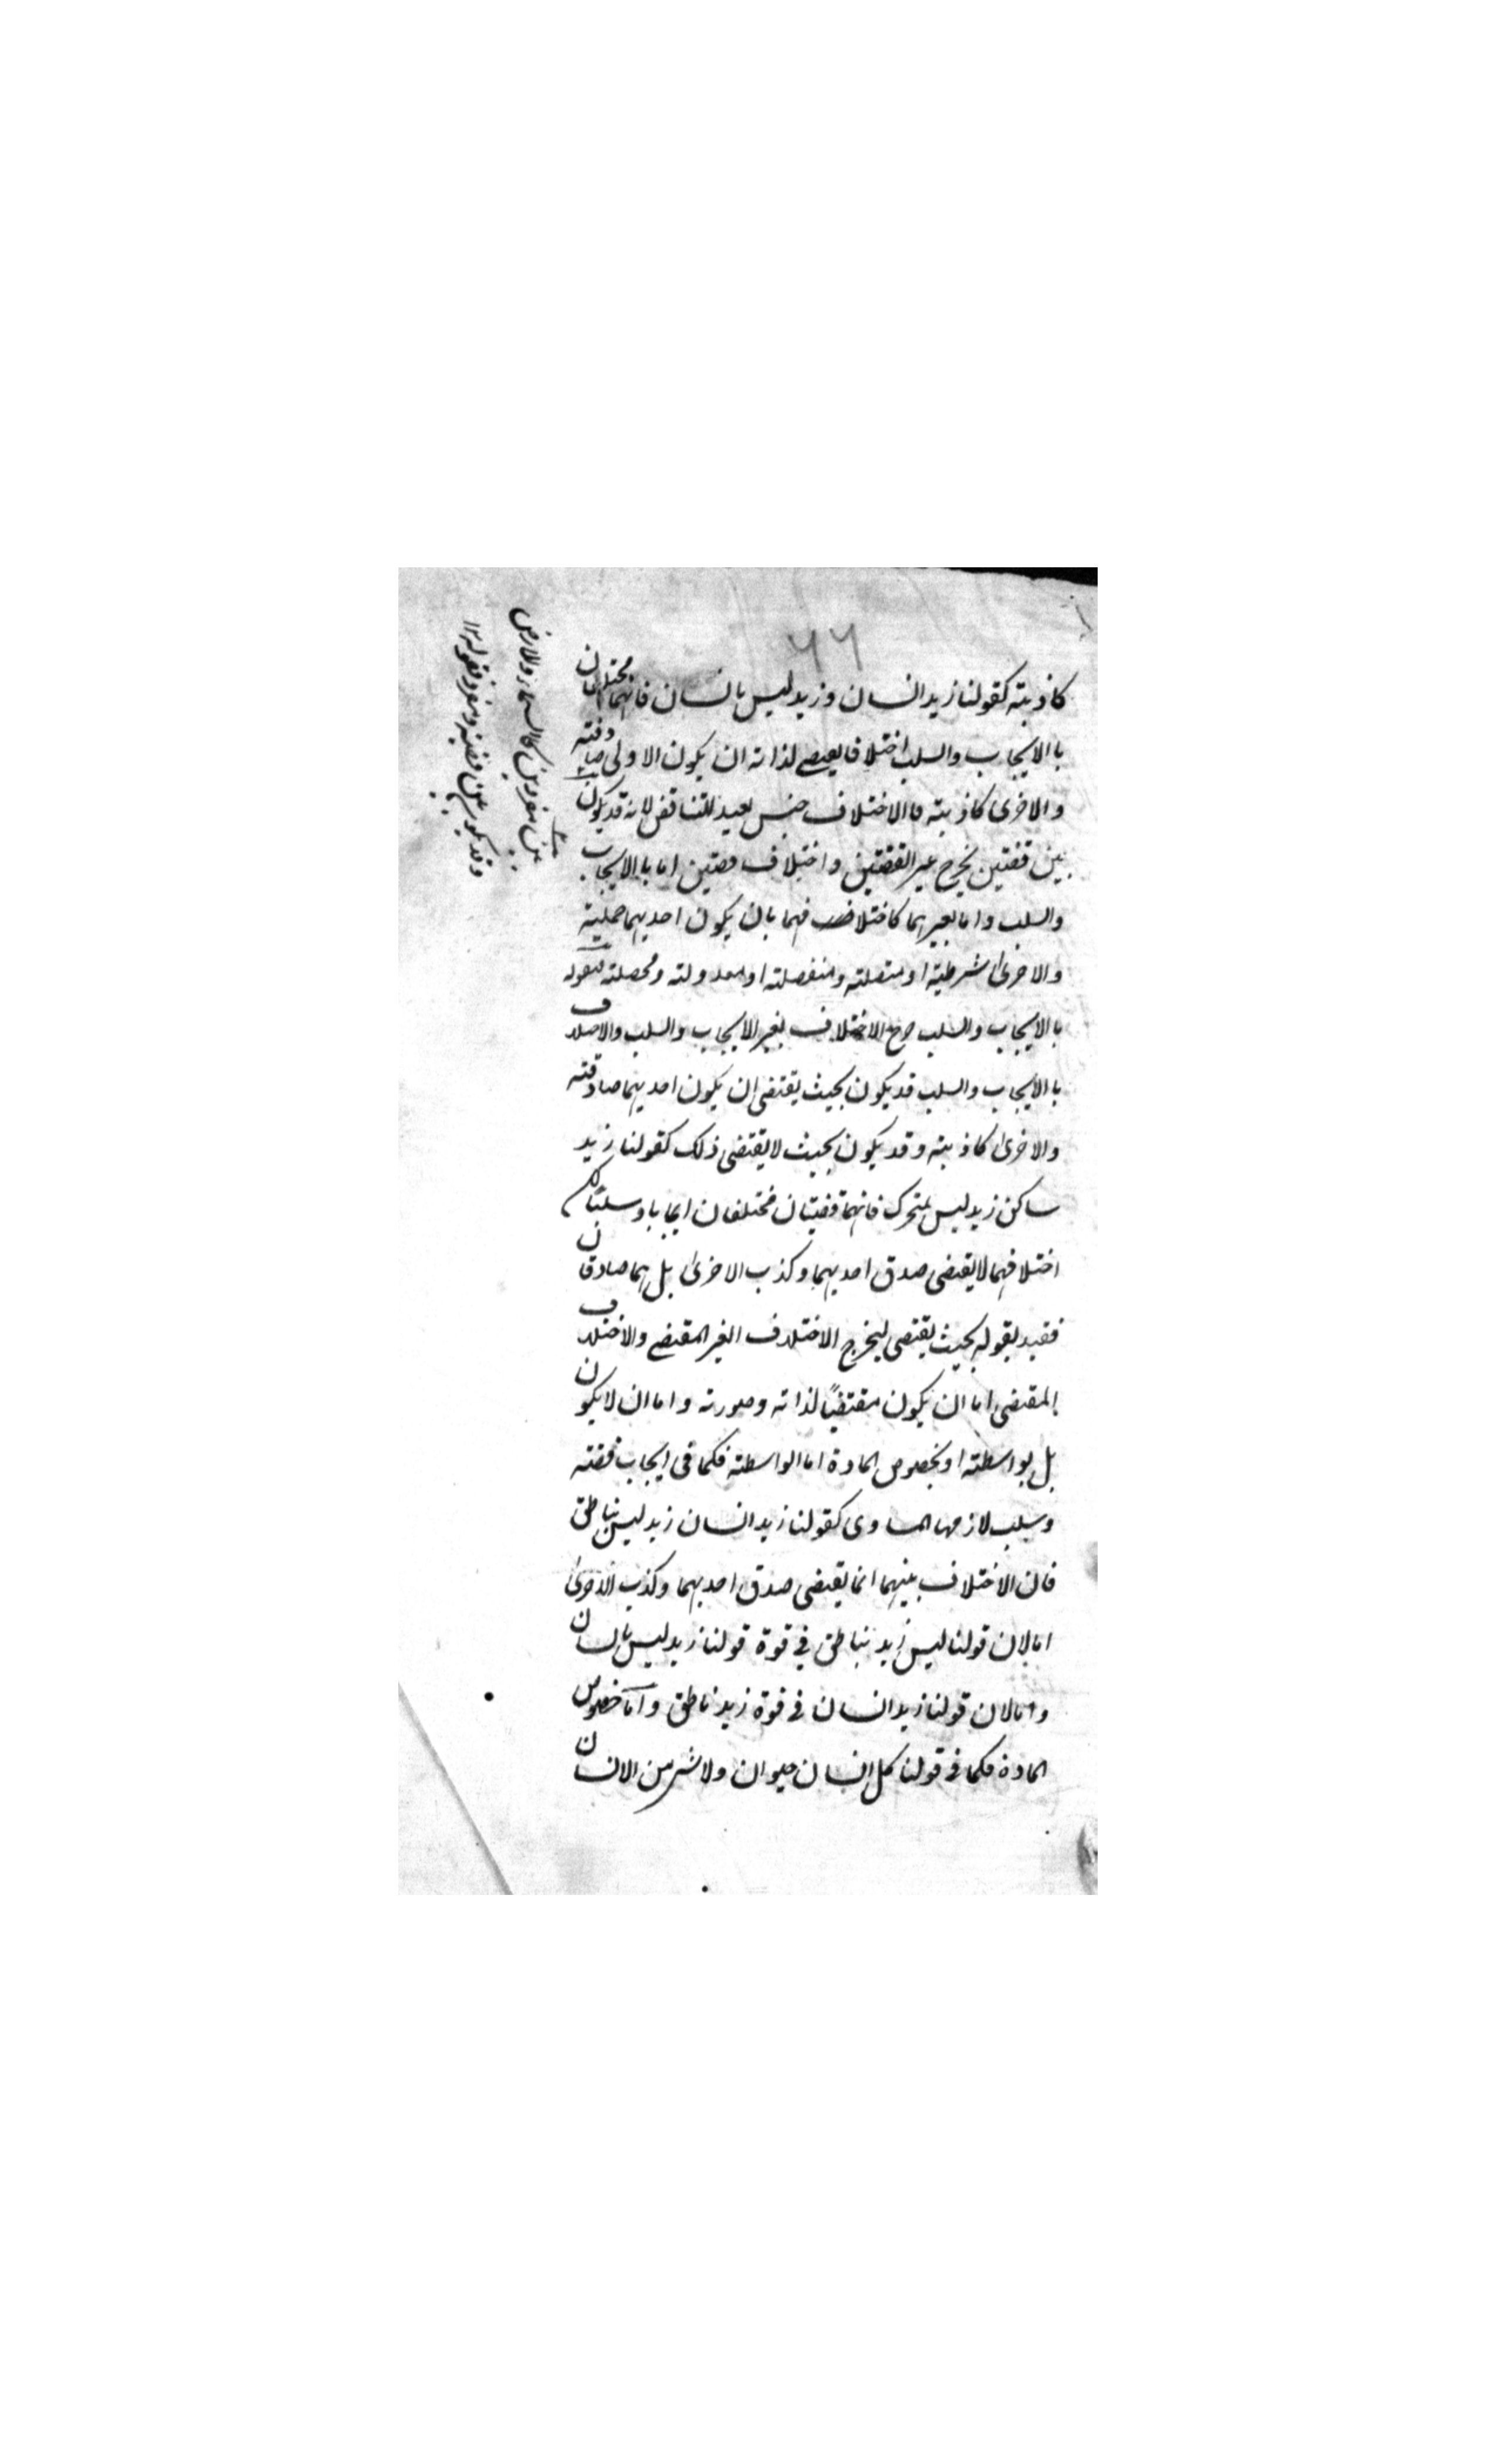 ٦٦
كاذبته كقولنا زيد انسان وزيد ليس بانسان فانهما مختلفان
باالايجاب والسلب اختلافا يقتضى لذاته ان يكون الاولى صادقته
والاخرى كاذبته فاالاختلاف جنس بعيد للتناقض لانه قد يكون
بين قضتين يخرج غير القضتين واختلاف قضتين اما باالايجاب
والسلب واما بغيرهما كاختلافهما بان يكون احديهما حملية
والاخرى شرطية او متصلته ومنفصلته او معدولته ومحصلته فقوله
باالايجاب والسلب يخرج الاختلاف بغير الايجاب والسلب والاختلاف
باالايجاب والسلب قد يكون بحيث يقتضى ان يكون احديهما صادقته
والاخرى كاذبته وقد يكون بحيث لا يقتضى ذلك كقولنا زيد
ساكن زيد ليس بمتحرك فانهما قضيتان مختلفان ايجابا وسلبا لكن
اختلافهما لا يقتضى صدق احديهما وكذب الاخرى بل هما صادقان
فقيد بقوله بحيث يقتضى ليخرج الاختلاف الغير المقتضى والاختلاف
المقتضى اما ان يكون مقتضيًا لذاته وصورته واما ان لا يكون
بل بواسطته او بخصوص المادة اما الواسطته فكما فى ايجاب قضته
وسلب لازمها المساوى كقولنا زيد انسان زيد ليس بناطق
فان الاختلاف بينهما انما يقتضى صدق احديهما وكذب الاخرى
اما لان قولنا ليس زيد بناطق فى قوة قولنا زيد ليس بانسان
واما لان قولنا زيد انسان فى قوة زيد ناطق واما خصوص
المادة فكما فى قولنا كل انسان حيوان ولا شئ من الانسان
بين مفردين كالسماء والارض
وقد يكون بين قضية ومفرد فقوله